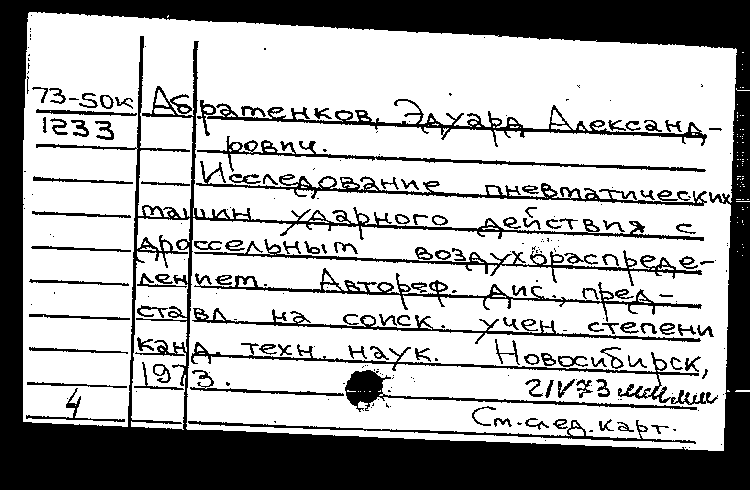 73-50к Абраменков, Эдуард Александ-
1233
рович.
Исследование пневматических
машин ударного действия с
дроссельным воздухораспреде-
лением. Автореф. дис., пред-
ставл. на соиск. учен. степени
канд. техн. наук. Новосибирск,
1973.
21V73
4
См. след. карт.